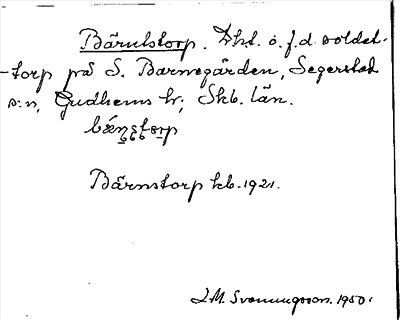 Bärnstorp. Dkt. o. f.d. soldat-
-torp på S. Barnegården, Segerstad
s:n, Gudhems hr, Skb. län.
Bärnstorp kb. 1921.
J.M. Svenungsson. 1950.